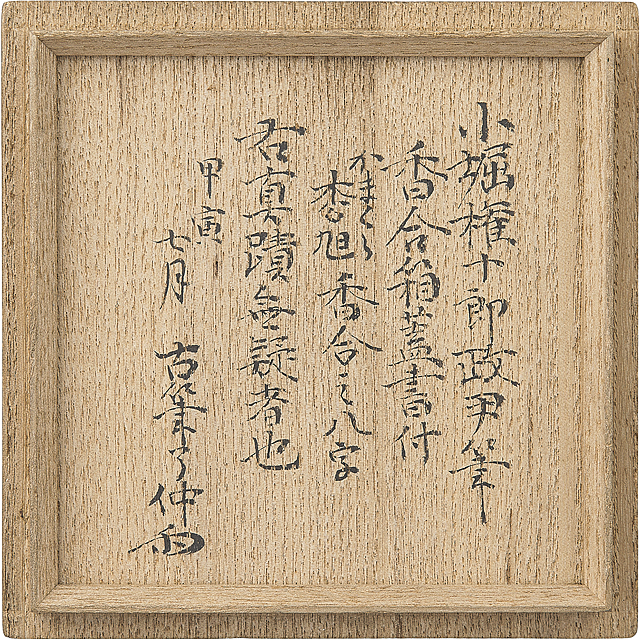 小堀権十郎政尹筆
香合箱蓋書付
かまくら
香合之八字
右真蹟無疑者也
甲寅
七月
古筆了仲